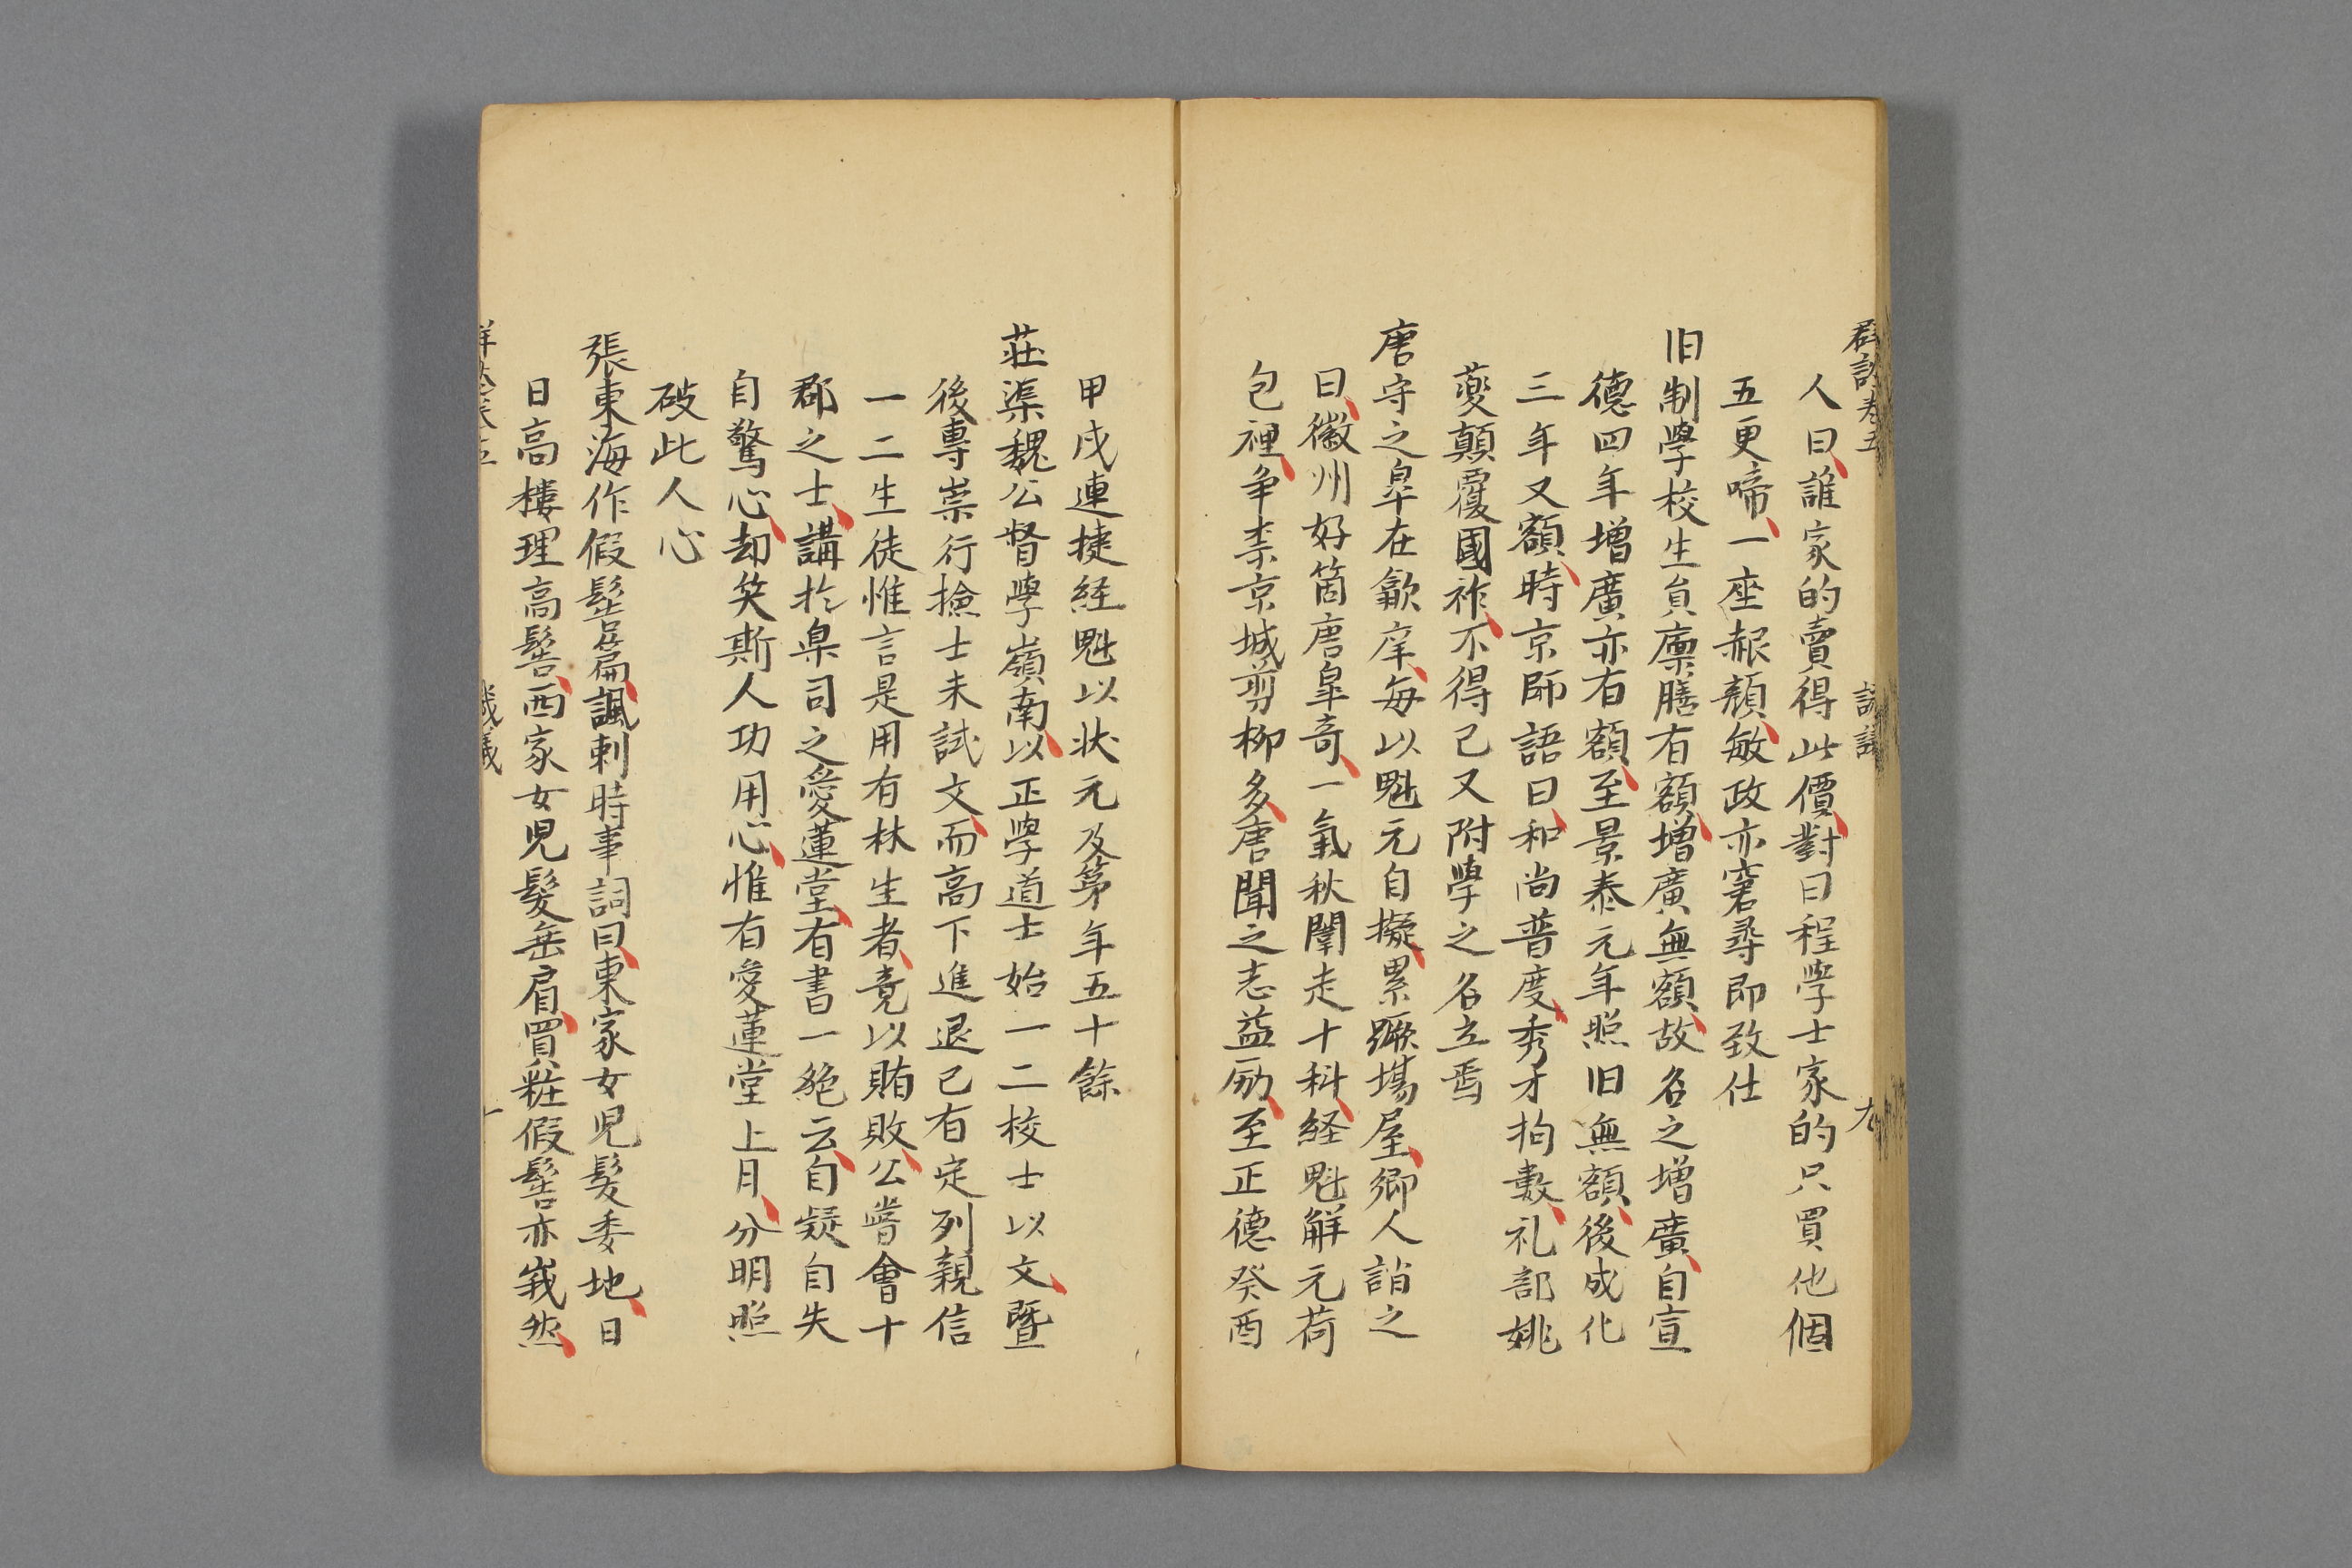 群談卷五
九
人曰誰家的賣得此價對曰程學士家的只買他個
五更啼一座赧頳敏政亦窘尋即致仕
旧制學校生員廪膳有額增廣無額故名之增廣自宣
德四年增廣亦有額至景泰元年照旧無額後成化
三年又額時京師語曰和尚普度秀才拘數礼部姚
夔顛覆國祚不得已又附學之名立焉
唐守之皐在歙庠每以魁元自擬累蹶塲屋鄉人誚之
曰徽州好箇唐皐哥一氣秋闈走十科経魁觧元荷
包裡争柰京城剪柳多唐聞之志益励至正德癸酉
甲戌連捷経魁以状元及第年五十餘
莊渠魏公督學嶺南以正學道士始一二校士以文暨
後專崇行撿士未試文而高下進退已有定列親信
一二生徒惟言是用有林生者竟以賄敗公嘗會十
郡之士講於臬司之愛蓮堂有書一絶云自疑自失
自驚心却笑斯人功用心惟有愛蓮堂上月分明照
破此人心
張東海作假髻篇諷刺時事詞曰東家女児髪委地日
日高樓理高髻西家女児髪垂肩買粧假髻亦峩然